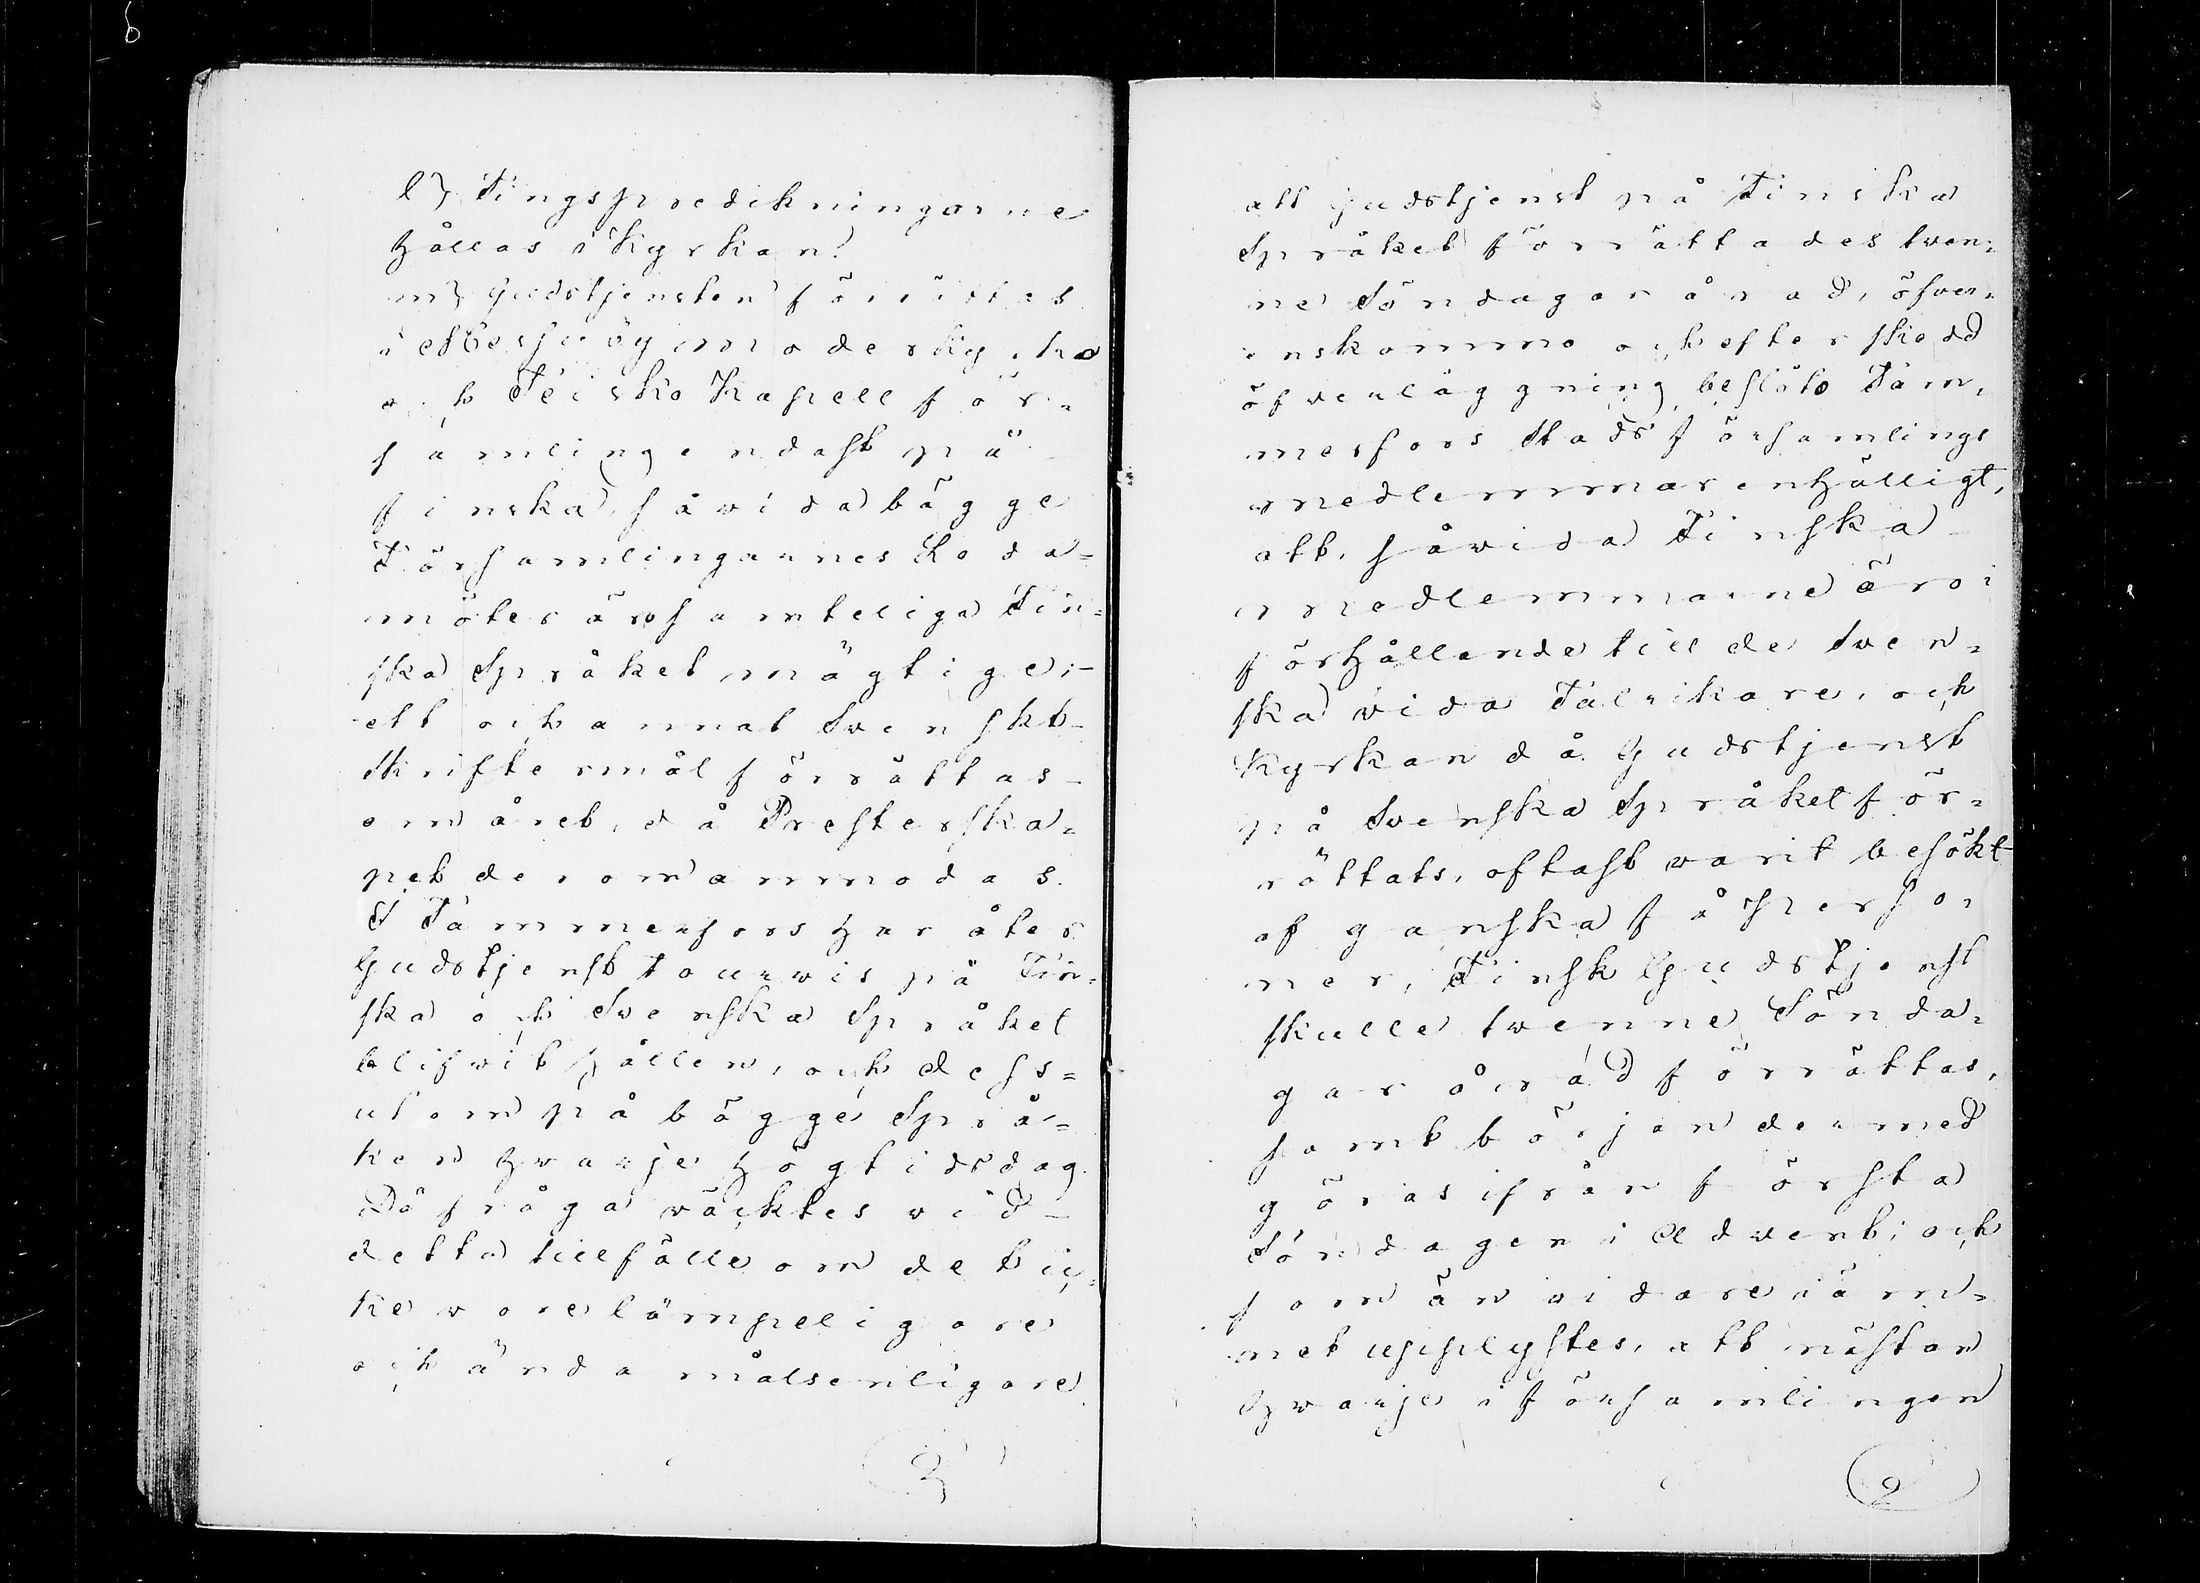 l, Tingspredikningarne
hållas i Kyrkan.
m, Gudstjensten förrättas
i Messuby moderkyrka
och Teisko Kapell för-
samling endast på
finska, såvida bägge
Församlingarnes Leda-
möter äro samteliga Fin-
ska Språket mägtige;-
ett och annat Svenskt
Skriftermål förrättas
om året, då Presterska-
pet derom anmodas.
I Tammerfors har åter
Gudstjenst tourvis på Fin-
ska och Svenska Språket
blifvit hållen, och dess-
utom på bägge Språ-
ken hvarje högtidsdag.
Då fråga väcktes vid
detta tillfälle om det ic-
ke vore lämpeligare
och ändamålsenligare
2
att Gudstjenst på Finska
Språket förrättades tven-
ne Söndagar å rad, öfver-
enskommo och efter skedd
öfverläggning beslöto Tam-
merfors Stads Församlings
medlemmar enhälligt,
att, såvida Finska
medlemmarne äro i
förhållande till de Sven-
ska vida talrikare, och
Kyrkan då Gudstjenst
på Svenska Språket för-
rättats, oftast varit besökt
af ganska få perso-
ner, Finsk Gudstjenst
skulle tvenne Sönda-
gar å rad förrättas,
samt början dermed
göras ifrån första
Söndagen i Advent; och
som än vidare i äm-
net upplystes, att nästan
hvarje i församlingen
2
6